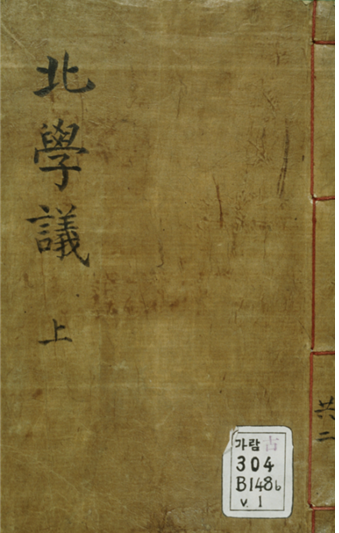 北學議
上
共二
가람 古
304
B148b
v. 1